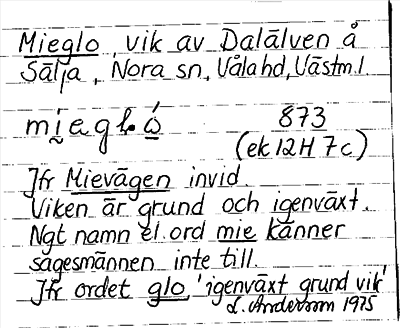 Mieglo, vik av Dalälven å
Sälja, Nora sn, Våla hd, Västm. l
miegló 873
(ek 12H 7c)
Jfr Mievägen invid.
Viken är grund och igenväxt.
Ngt namn el. ord mie känner
sagesmännen inte till.
Jfr ordet glo 'igenväxt grund vik'
L. Andersson 1975